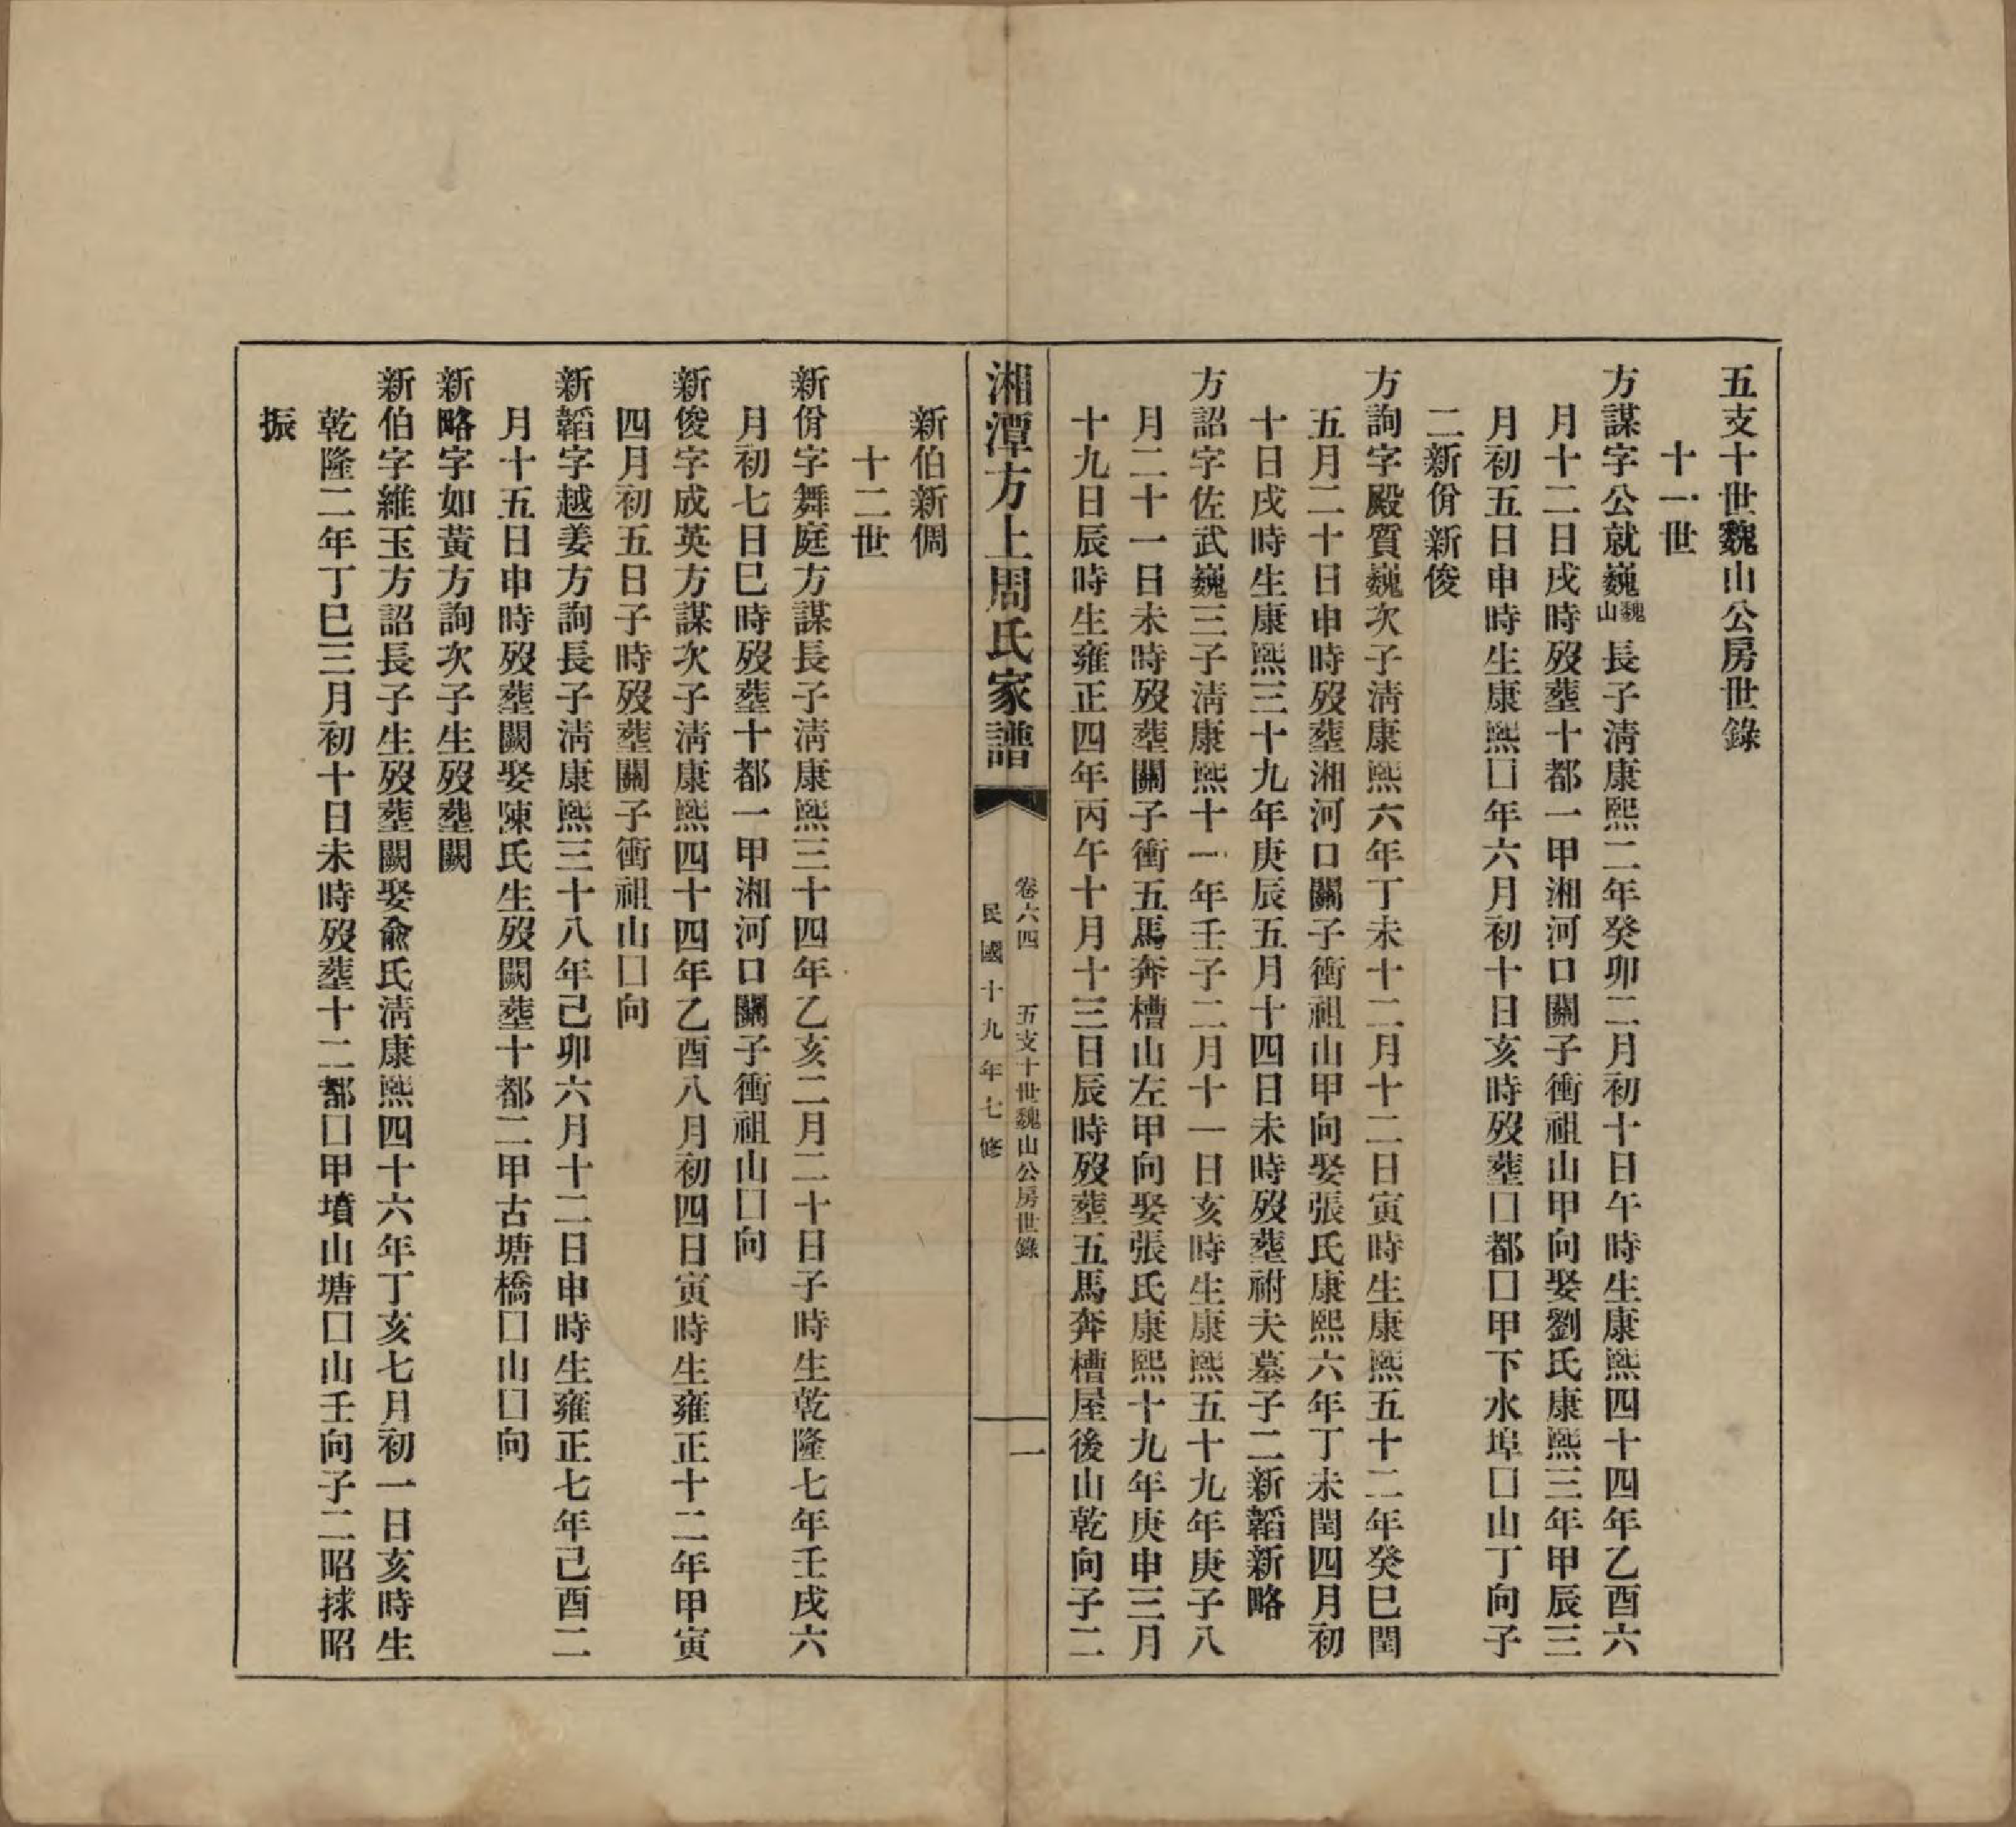 五支十世魏山公房世錄
十一世
方謀字公就巍魏山長子淸康熙二年癸卯二月初十日午時生康熙四十四年乙酉六
月十二日戌時歿葬十都一甲湘河口關子衝祖山甲向娶劉氏康熙三年甲辰三
月初五日申時生康熙囗年六月初十日亥時歿葬囗都囗甲下水埠囗山丁向子
二新佾新俊
方詢字殿質巍次子淸康熙六年丁未十二月十二日寅時生康熙五十二年癸巳閏
五月二十日申時歿葬湘河口關子衝祖山甲向娶張氏康熙六年丁未閏四月初
十日戌時生康熙三十九年庚辰五月十四日未時歿葬祔夫墓子二新韜新略
方詔字佐武巍三子淸康熙十一年壬子二月十一日亥時生康熙五十九年庚子八
月二十一日未時歿葬關子衝五馬奔槽山左甲向娶張氏康熙十九年庚申三月
十九日辰時生雍正四年丙午十月十三日辰時歿葬五馬奔槽屋後山乾向子二
湘潭方上周氏家譜
卷六四 五支十世魏山公房世錄
民國十九年七修
一
新伯新倜
十二世
新佾字舞庭方謀長子淸康熙三十四年乙亥二月二十日子時生乾隆七年壬戌六
月初七日巳時歿葬十都一甲湘河口關子衝祖山囗向
新俊字成英方謀次子淸康熙四十四年乙酉八月初四日寅時生雍正十二年甲寅
四月初五日子時歿葬關子衝祖山囗向
新韜字越姜方詢長子淸康熙三十八年己卯六月十二日申時生雍正七年己酉二
月十五日申時歿葬闕娶陳氏生歿闕葬十都二甲古塘橋囗山囗向
新略字如黃方詢次子生歿葬闕
新伯字維玉方詔長子生歿葬闕娶兪氏淸康熙四十六年丁亥七月初一日亥時生
乾隆二年丁巳三月初十日未時歿葬十二都囗甲墳山塘囗山壬向子二昭捄昭
振